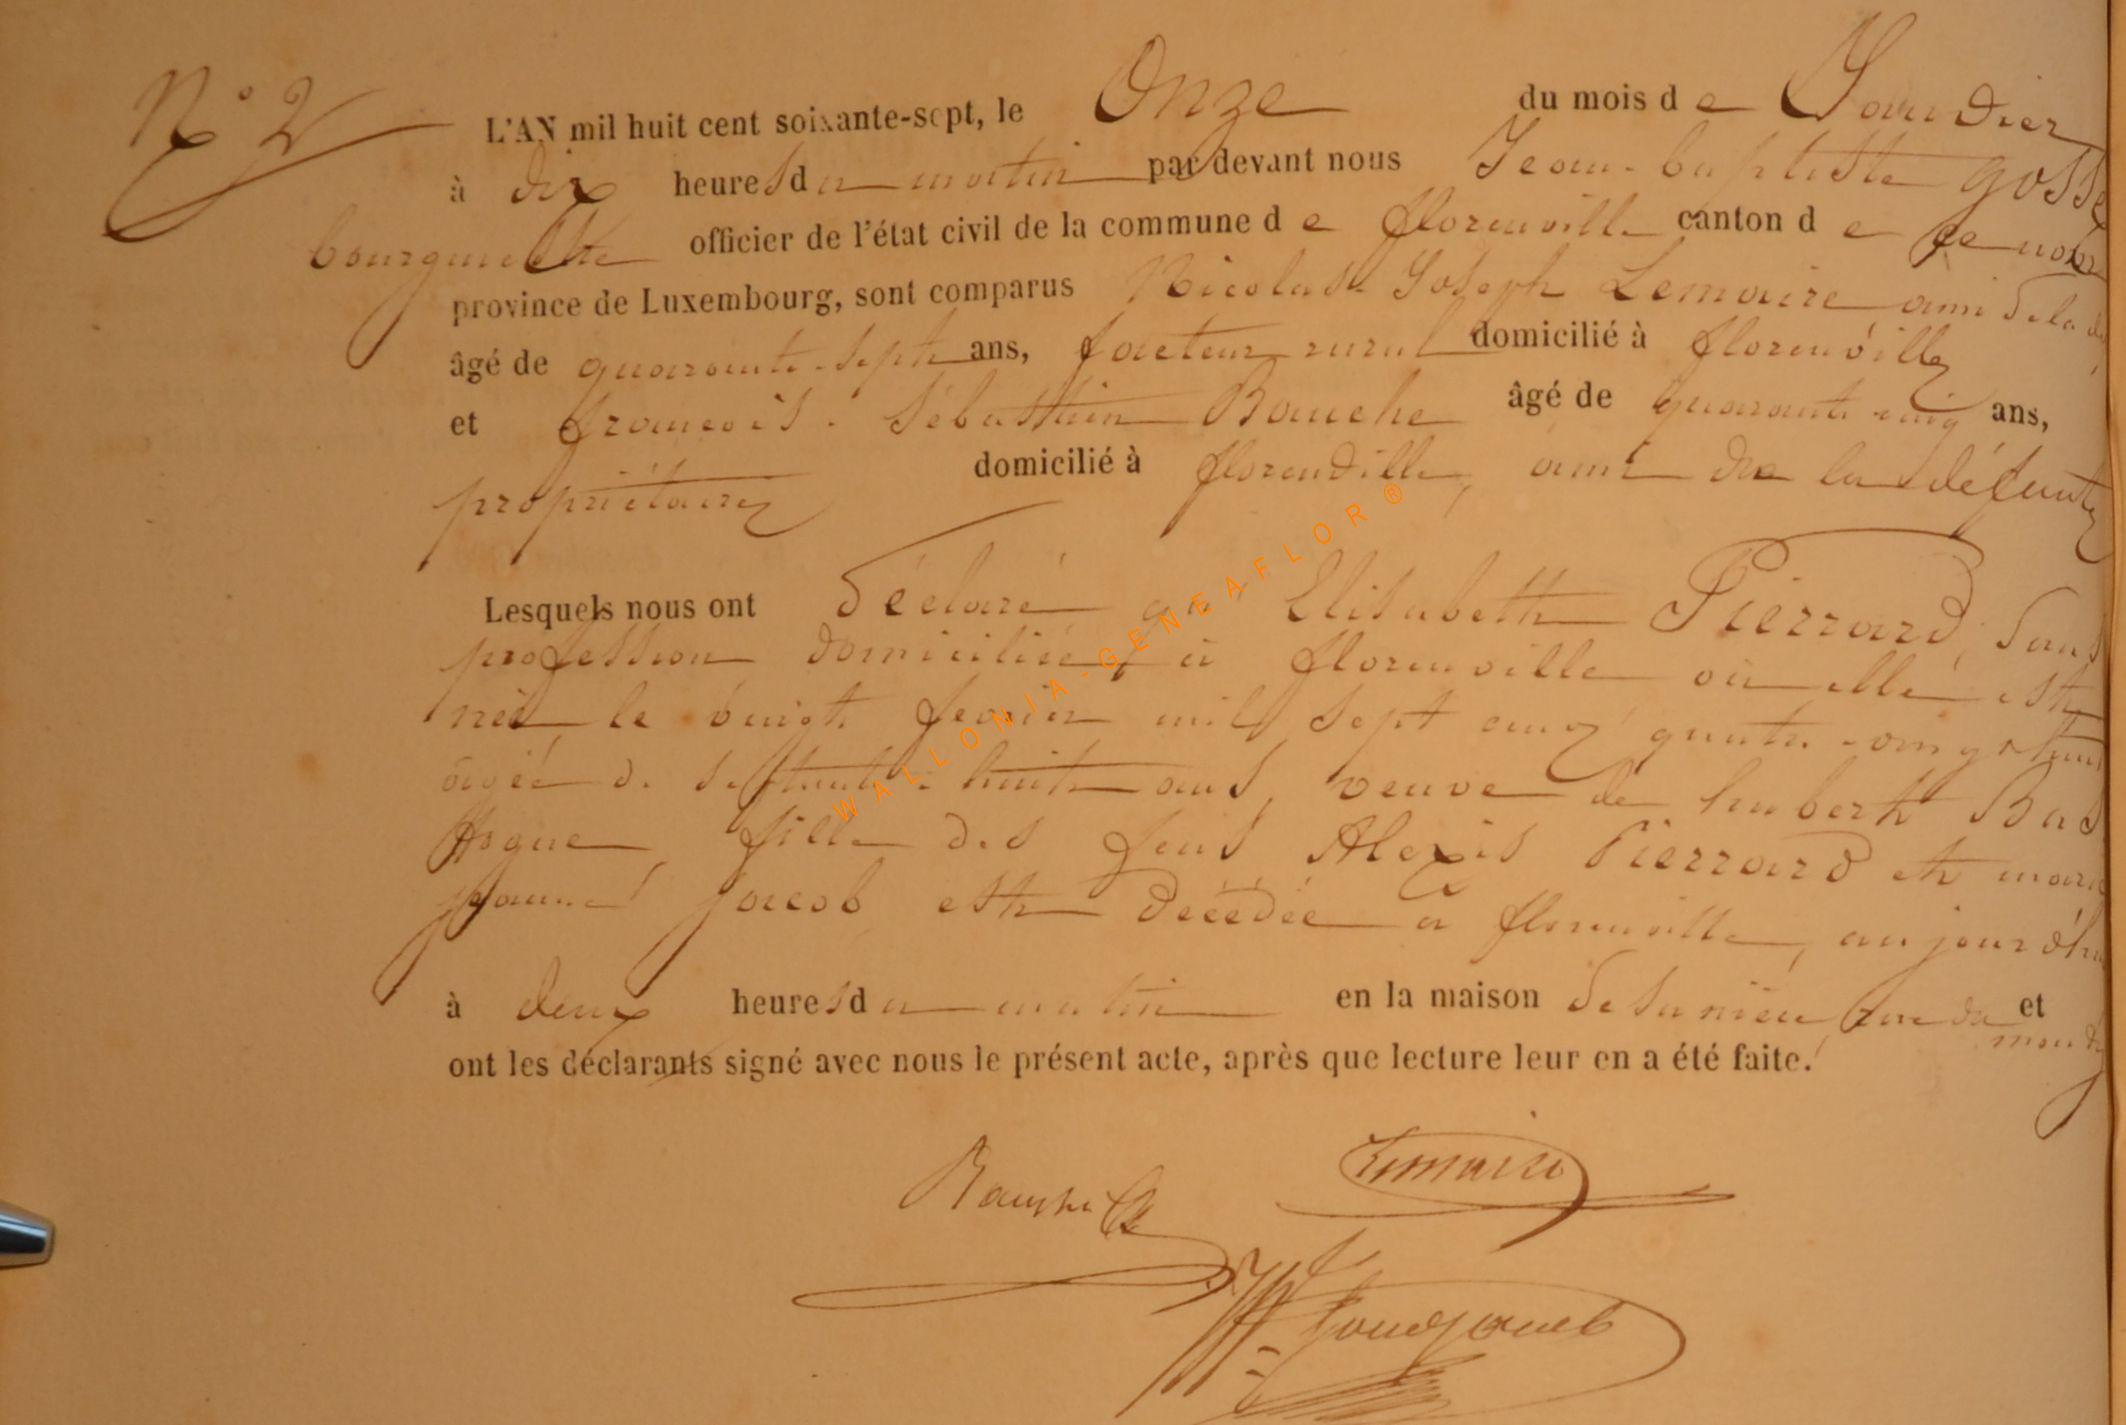 N° 2
L'AN mil huit cent soixante-sept, le Onze du mois de Janvier
à dix heures du matin par devant nous Jean-baptiste gosse
bourgmestre officier de l'état civil de la commune de florenville canton de
province de Luxembourg, sont comparus Nicolas Joseph Lemaire ami de la
âgé de quarante-sept ans, facteur rural domicilié à florenville
et françois Sébastien Bauche âgé de quarante cinq ans,
propriétaire domicilié à florenville, amis de la défunte
Lesquels nous ont déclaré que Elisabeth Pierrard, sans
profession domiciliée à florenville où elle est
née le vingt fevrier mil sept cent quatre-vingt neuf
agée de septante-huit ans, veuve de hubert Bas
togne, fille des feus Alexis Pierrard et marie
jeanne jacob est décédée à florenville, aujourd'hui
à deux heures du matin en la maison de sa nièce, rue du et
ont les déclarants signé avec nous le présent acte, après que lecture leur en a été faite.
Bauche Lemaire
WALLONIA-GENEAFLOR®